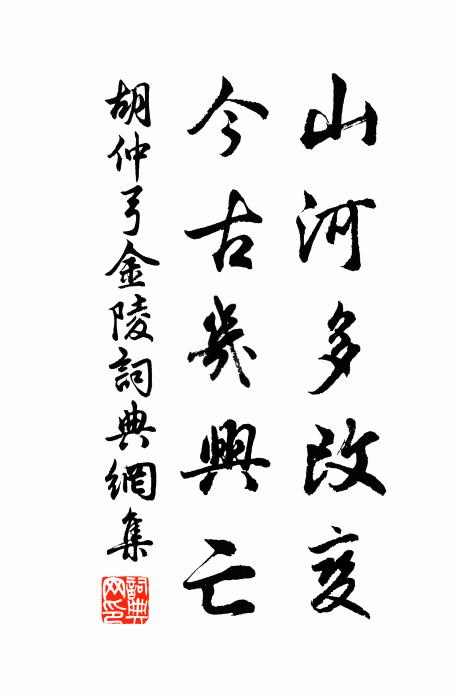 山河多改变
今古幾興亡
胡仲弓金陵詞典網集
詞典網印